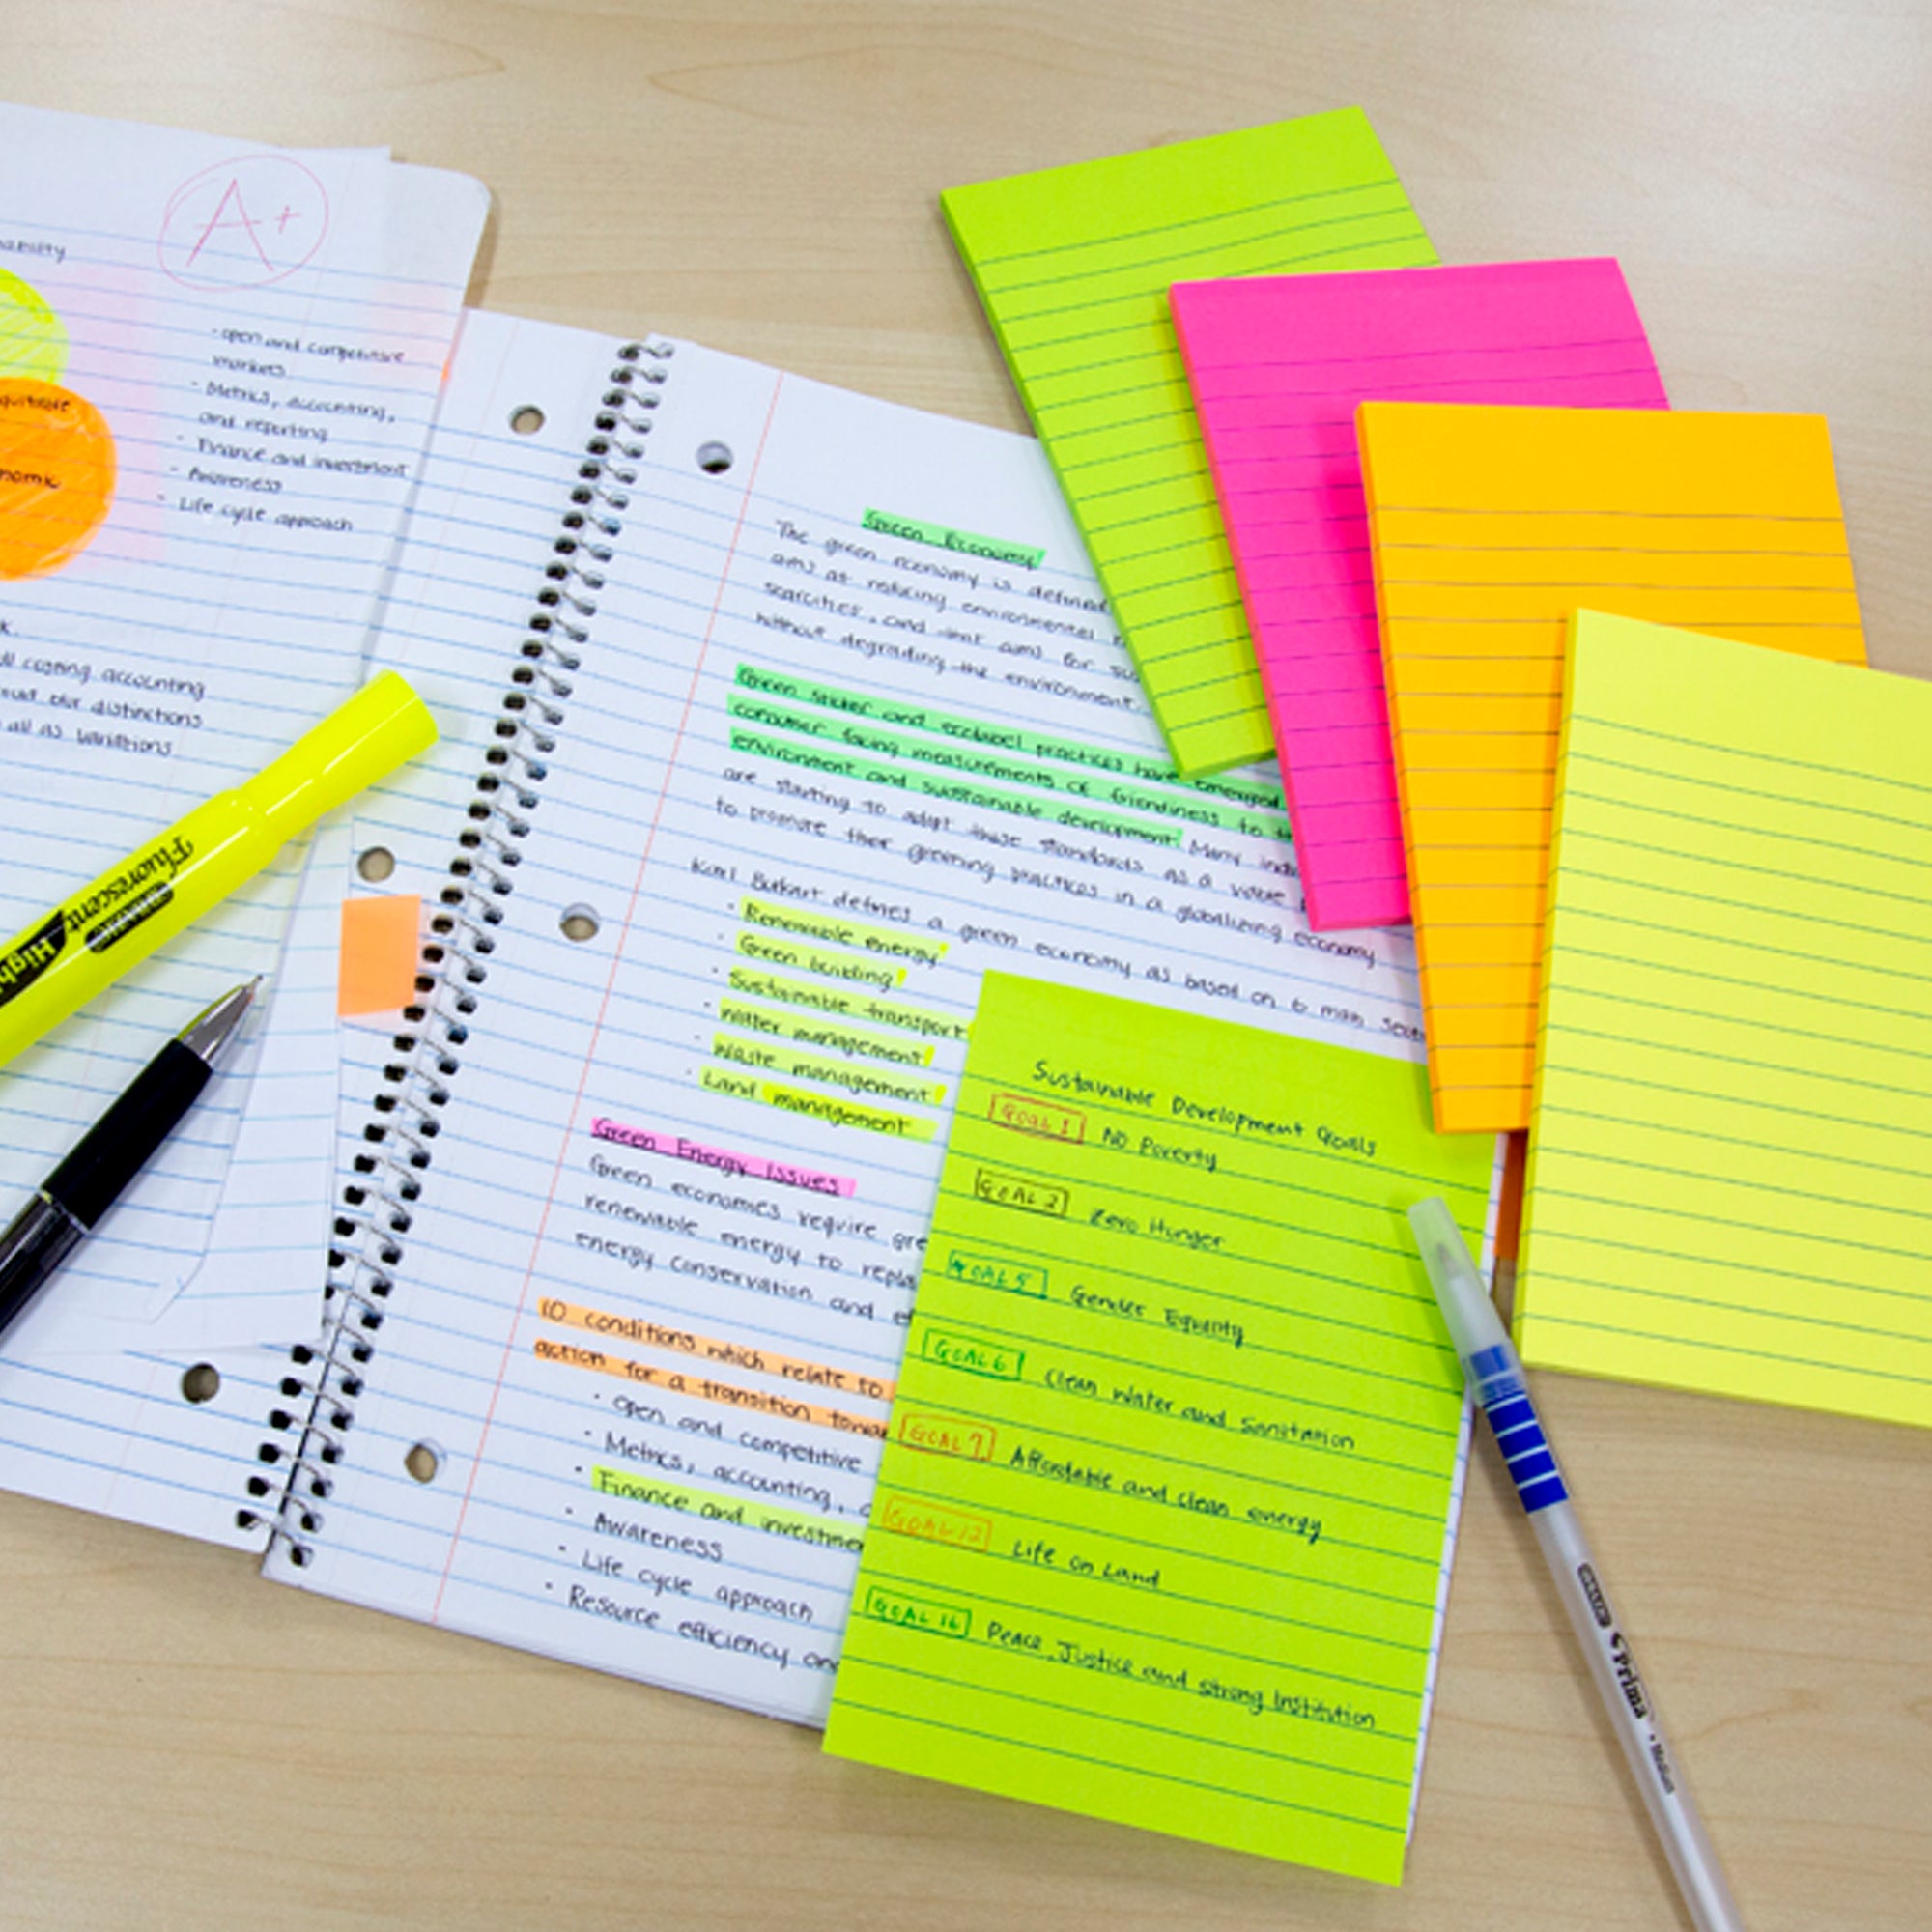 A+
- open and competitive
markets
- Metrics, accounting,
and reporting
- Finance and investment
- Awareness
- Life cycle approach
costing accounting
blur distinctions
all as variations
Fluorescent
Green Economy
The green economy is defined
aims at reducing environmental
scarcities, and that aims for
without degrading the environment.
Green sticker and ecolabel practices have emerged
consumer facing measurements of friendliness to
environment and sustainable development. Many
are starting to adopt these standards as a viable
to promote their greening practices in a globalizing economy
Karl Burkart defines a green economy as based on 6 main
- Renewable energy
- Green building
- Sustainable transport
- Water management
- Waste management
- Land management
Green Energy Issues
Green economies require
renewable energy to
energy conservation and
10 conditions which relate to
action for a transition
- Open and competitive
- Metrics, accounting,
- Finance and
- Awareness
- Life cycle approach
- Resource efficiency
Sustainable Development Goals
GOAL 1 No Poverty
GOAL 2 Zero Hunger
GOAL 5 Gender Equality
GOAL 6 Clean Water and Sanitation
GOAL 7 Affordable and clean energy
GOAL 12 Life on Land
GOAL 16 Peace, Justice and Strong Institution
Prima